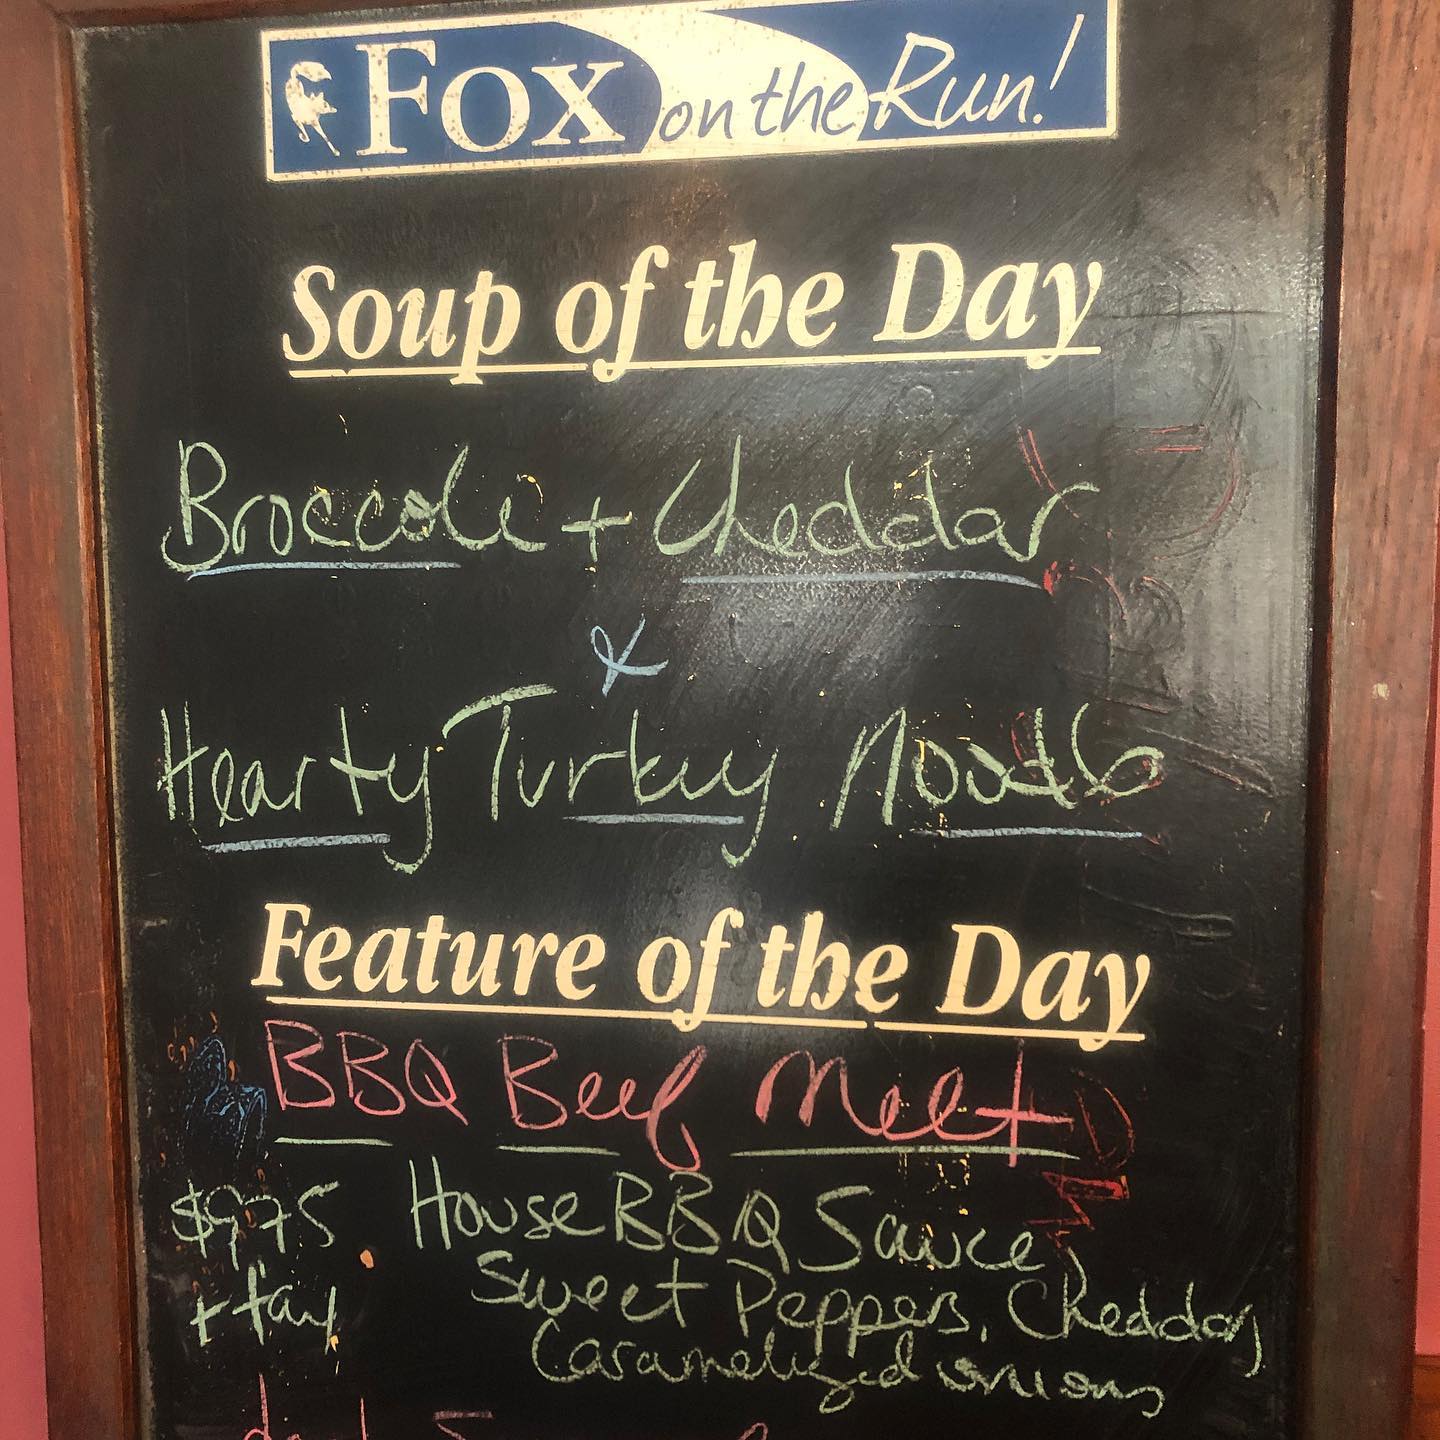 Fox on the Run!
Soup of the Day
Broccoli + Cheddar
&
Hearty Turkey Noodle
Feature of the Day
BBQ Beef Melt
$9.75 House BBQ Sauce,
+ tax Sweet Peppers, Cheddar,
Caramelized onions